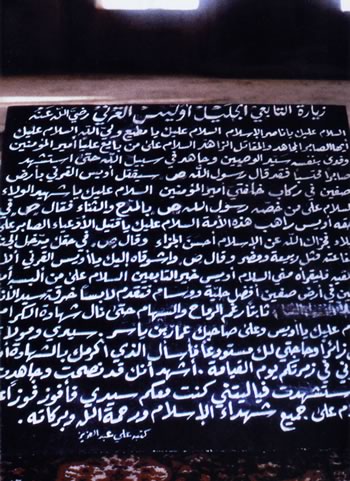 زيارة التابعي الجليل أويس القرني رضي الله عنه
السلام عليك يا ناصر الإسلام السلام عليك يا مطيع ولي الله السلام عليك
أيها الصابر المجاهد والمقاتل الزاهد السلام على من بايع علياً أمير المؤمنين
وفدى بنفسه سيد الوصيين وجاهد في سبيل الله حتى استشهد
صابراً محتسباً فقد قال رسول الله ص سيقتل أويس القرني بأرض
صفين في ركاب خليفتي أمير المؤمنين السلام عليك يا شهيد الولاء
السلام على من خصه رسول الله ص بالمدح والثناء فقال ص في
حقه أويس راهب هذه الأمة السلام عليك يا قتيل الأدعياء الصابر على
البلاء فجزاك الله عن الإسلام أحسن الجزاء وقال ص في حقك يدخل الجنة
شفاعته مثل ربيعة ومضر وقال ص واشوقاه إليك يا أويس القرني ألا
لقيه فليقرأه مني السلام أويس خير التابعين السلام على من ألبس
في أرض صفين أفضل حلية ووسام فتقدم لابساً خرقة سيد الأنام
ثابتاً الرماح والسهام حتى نال شهادة الكرام
السلام عليك يا أويس وعلى صاحبك عمار بن ياسر سيدي ومولاي
زائراً وحاجتي لك مستودعاً فاسأل الذي أكرمك بالشهادة أن
في زمرتكم يوم القيامة أشهد أنك قد نصحت وجاهدت
استشهدت فيا ليتني كنت معكم سيدي فأفوز فوزاً
السلام على جميع شهداء الإسلام ورحمة الله وبركاته.
كتبه علي عبد العزيز